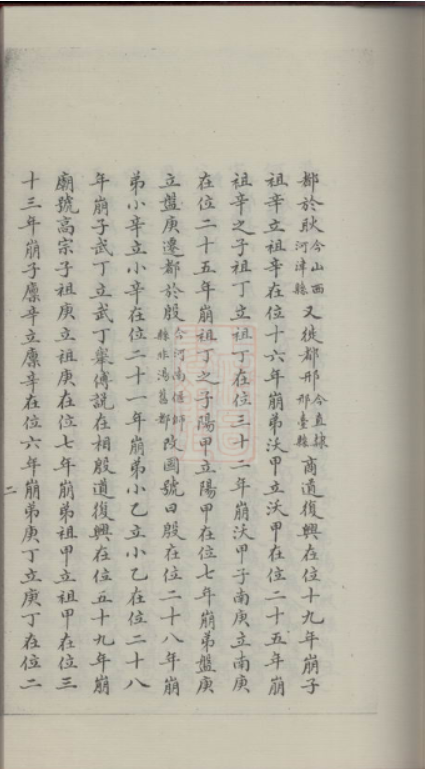 都於耿今山西河津縣又徙都邢今直隸邢臺縣商道復興在位十九年崩子
祖辛立祖辛在位十六年崩弟沃甲立沃甲在位二十五年崩
祖辛之子祖丁立祖丁在位三十二年崩沃甲子南庚立南庚
在位二十五年崩祖丁之子陽甲立陽甲在位七年崩弟盤庚
立盤庚遷都於殷今河南偃師縣非湯舊都改國號曰殷在位二十八年崩
弟小辛立小辛在位二十一年崩弟小乙立小乙在位二十八
年崩子武丁立武丁舉傅說在相殷道復興在位五十九年崩
廟號高宗子祖庚立祖庚在位七年崩弟祖甲立祖甲在位三
十三年崩子廩辛立廩辛在位六年崩弟庚丁立庚丁在位二
二